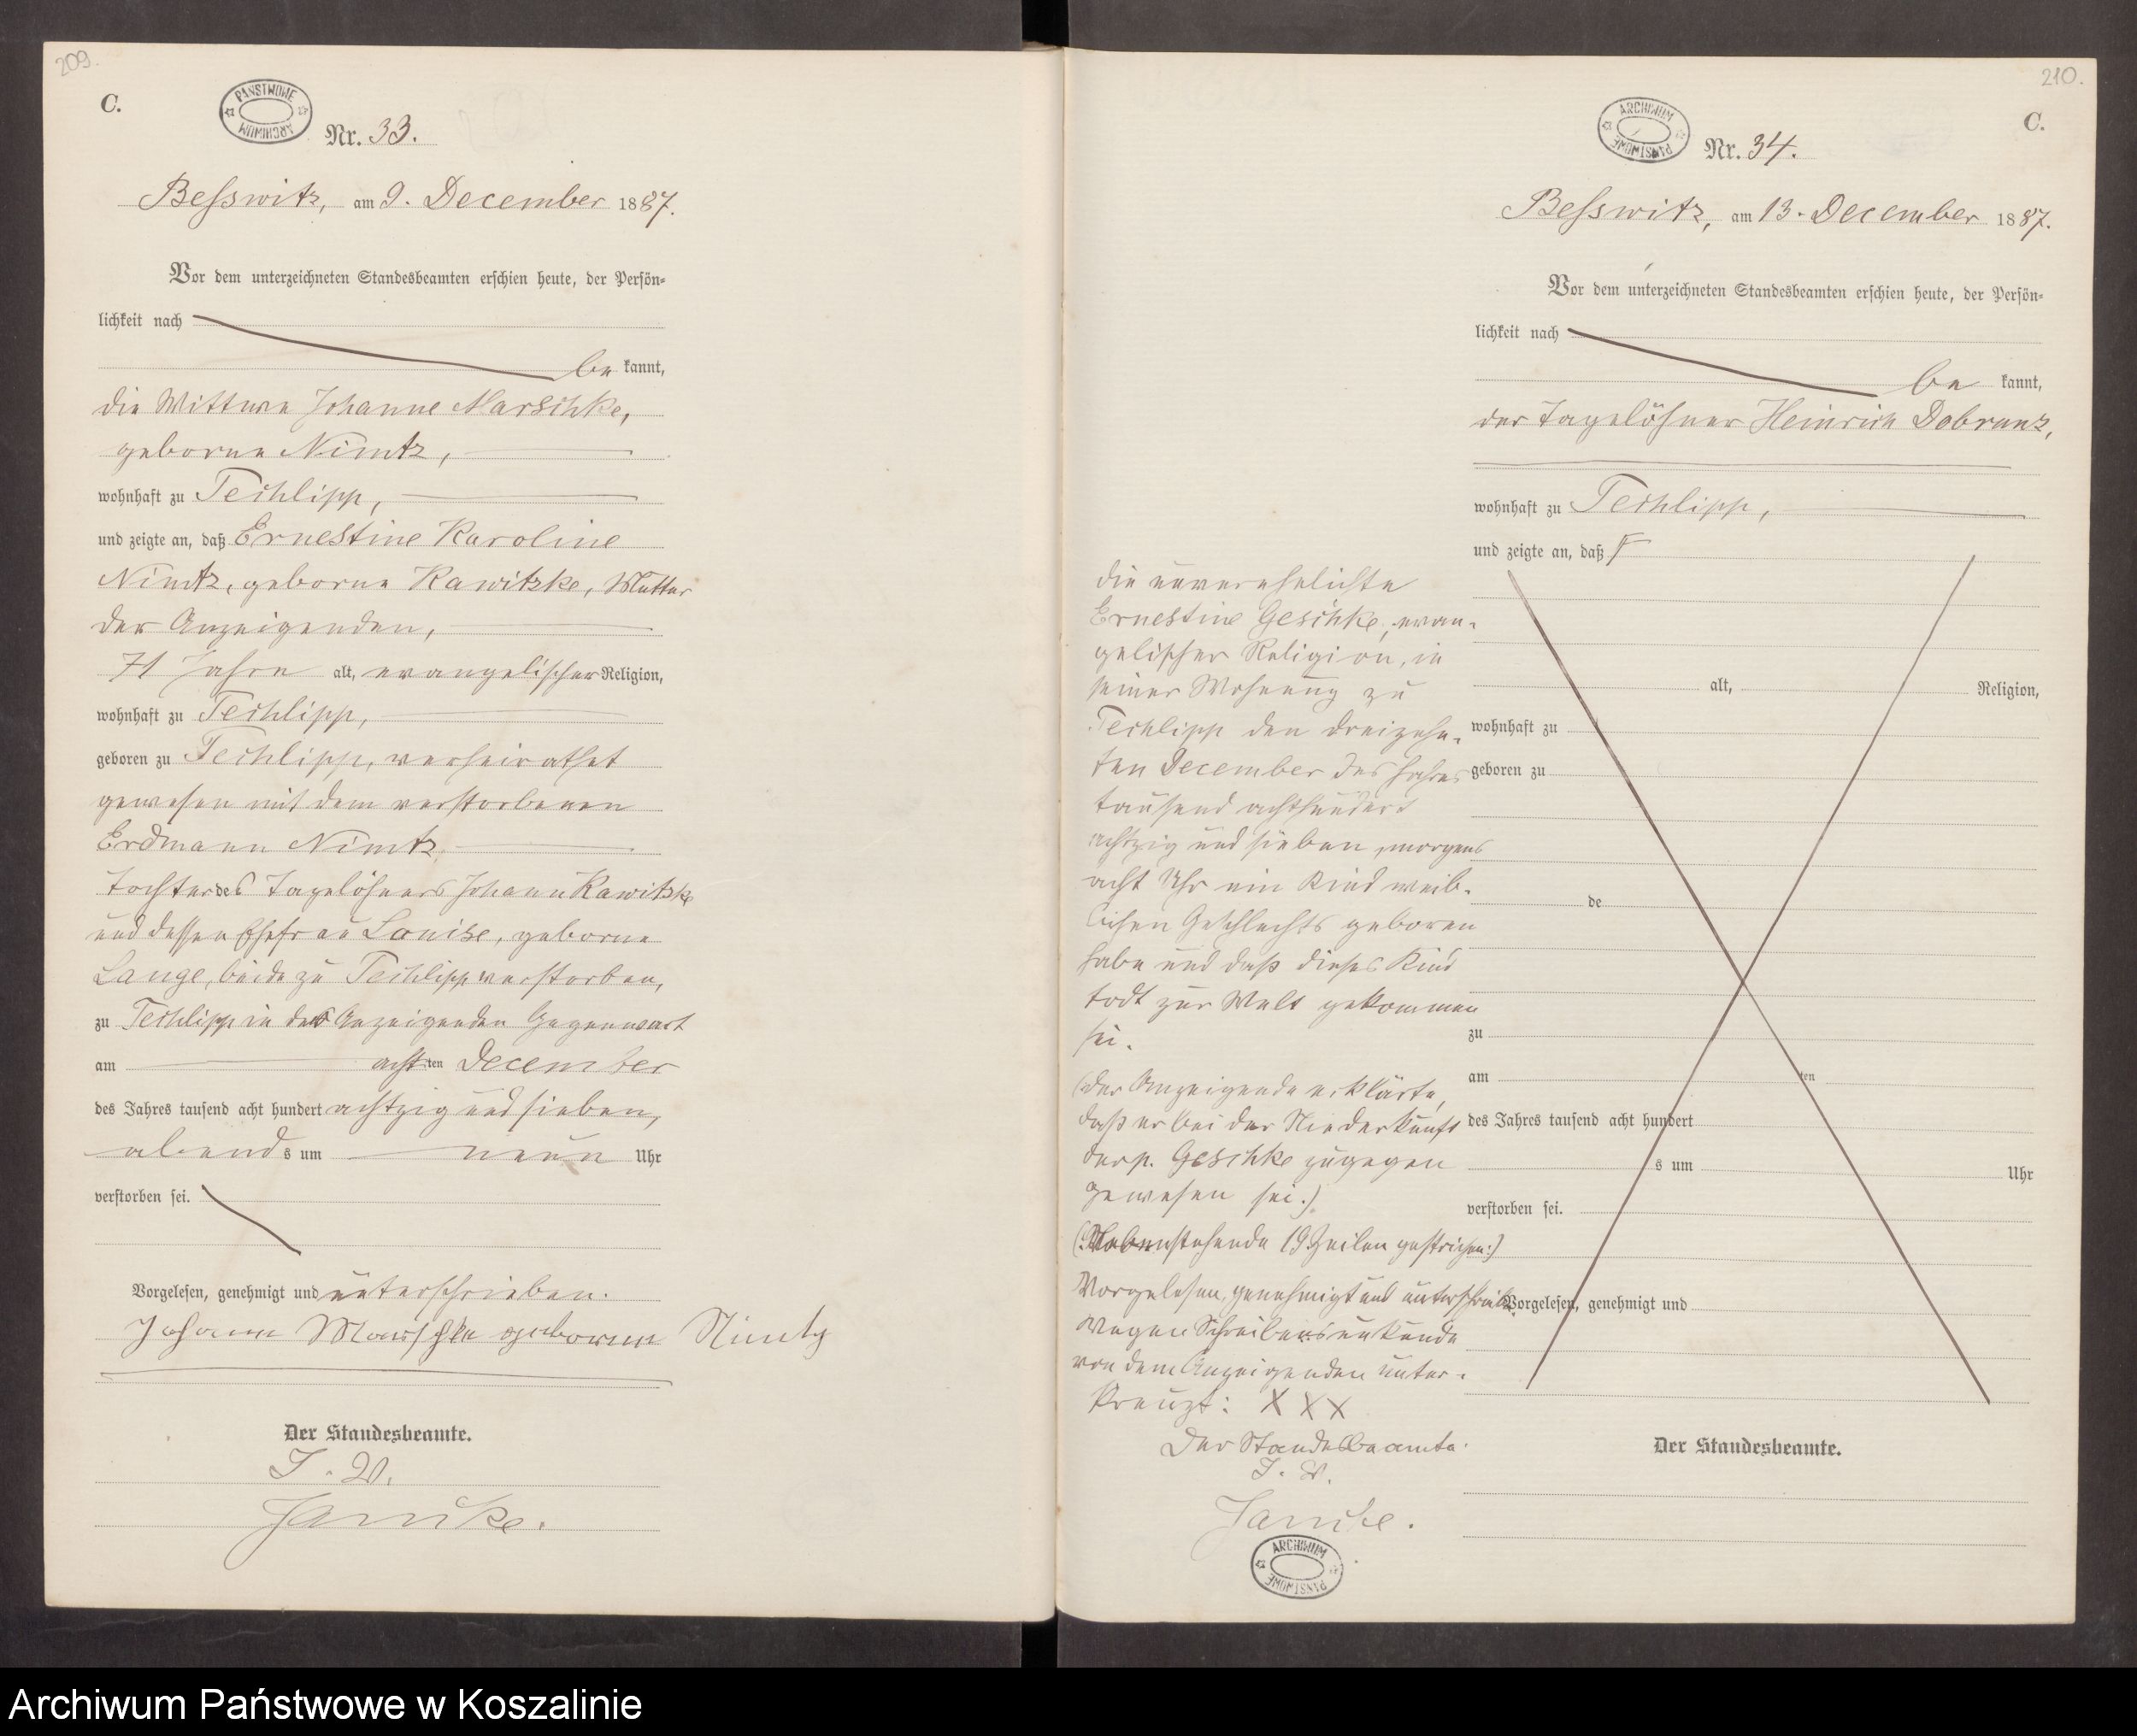 209.
C.
PAŃSTWOWE ARCHIWUM
Nr. 33.
Besswitz, am 9. December 1887.
Vor dem unterzeichneten Standesbeamten erschien heute, der Persön=
lichkeit nach
be kannt,
die Wittwe Johanne Marschke,
geborne Nimtz,
wohnhaft zu Techlipp,
und zeigte an, daß Ernestine Karoline
Nimtz, geborne Kawitzke, Mutter
der Anzeigenden,
71 Jahre alt, evangelischer Religion,
wohnhaft zu Techlipp,
geboren zu Techlipp, verheirathet
gewesen mit dem verstorbenen
Erdmann Nimtz
Tochter des Tagelöhners Johann Kawitzke
und dessen Ehefrau Louise, geborne
Lange, beide zu Techlipp verstorben,
zu Techlipp in der Anzeigenden Gegenwart
am achtten December
des Jahres tausend acht hundert achtzig und sieben,
abends um neun Uhr
verstorben sei.
Vorgelesen, genehmigt und unterschrieben.
Johann Marschke geborne Nimtz
Der Standesbeamte.
I. V.
Janike.
210.
C.
ARCHIWUM PAŃSTWOWE
Nr. 34.
Besswitz, am 13. December 1887.
Vor dem unterzeichneten Standesbeamten erschien heute, der Persön=
lichkeit nach
be kannt,
der Tagelöhner Heinrich Dobrunz,
wohnhaft zu Techlipp,
und zeigte an, daß
die unverehelichte
Ernestine Geschke, evan-
gelischer Religion, in
seiner Wohnung zu
Techlipp den dreizehn-
ten December des Jahres
tausend achthundert
achtzig und sieben, morgens
acht Uhr ein Kind weib-
lichen Geschlechts geboren
habe und daß dieses Kind
todt zur Welt gekommen
sei.
(Der Anzeigende erklärte,
daß er bei der Niederkunft
der p. Geschke zugegen
gewesen sei.)
(Nebenstehende 19 Zeilen gestrichen.)
Vorgelesen, genehmigt und
wegen Schreibensunkunde
von dem Anzeigenden unter-
kreuzt: X X X
Der Standesbeamte.
I. V.
Janike.
ARCHIWUM PAŃSTWOWE
alt, Religion,
wohnhaft zu
geboren zu
de
zu
am ten
des Jahres tausend acht hundert
s um Uhr
verstorben sei.
Vorgelesen, genehmigt und
Der Standesbeamte.
Archiwum Państwowe w Koszalinie